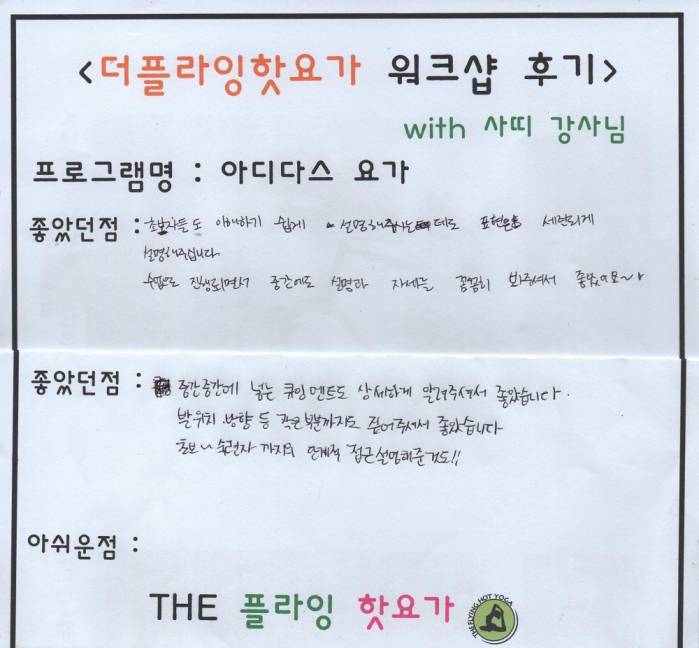 <더플라잉핫요가 워크샵 후기>
with 사띠 강사님
프로그램명 : 아디다스 요가
좋았던점 : 초보자들도 이해하기 쉽게 설명해주시는데도 표현은 세련되게
설명해주십니다.
수업도 진행되면서 중간에도 설명과 자세를 꼼꼼히 봐주셔서 좋았어요~
좋았던점 : 중간중간에 넣는 큐잉멘트도 상세하게 알려주셔서 좋았습니다.
발위치 방향 등 작은부분까지도 짚어주셔서 좋았습니다
초보~숙련자 까지의 단계적 접근설명해준것도!!
아쉬운점 :
THE 플라잉 핫요가
THE FLYING HOT YOGA